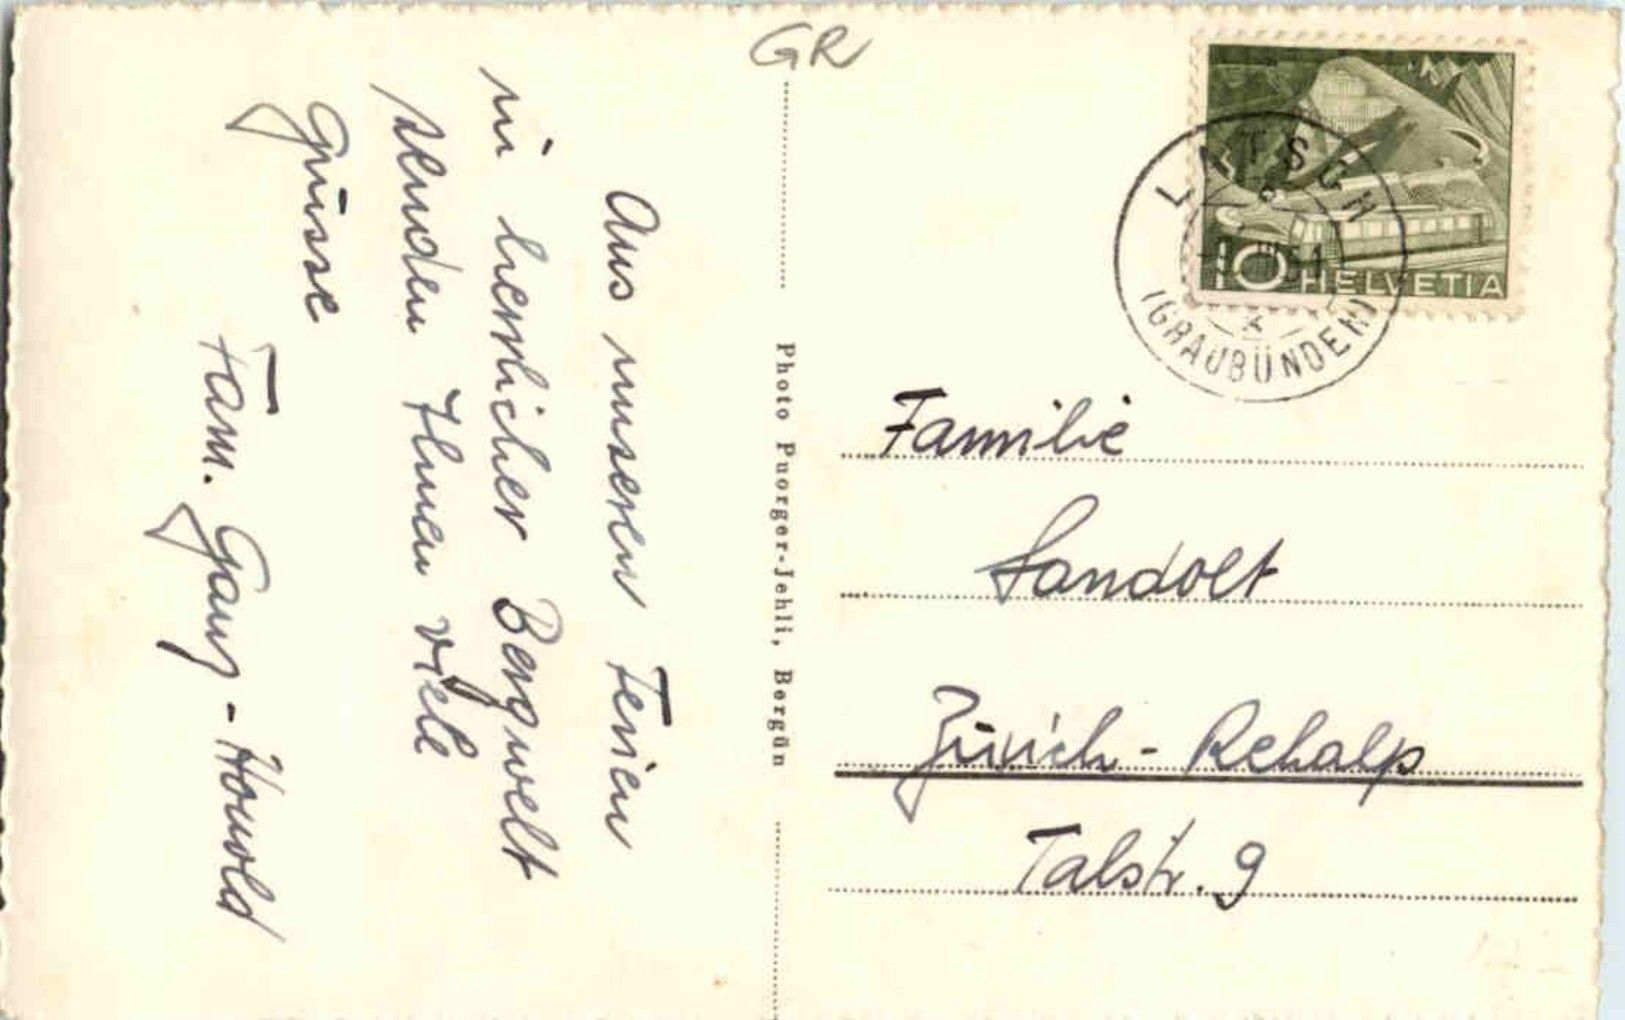 GR
Aus unseren Ferien
in herrlicher Bergwelt
senden Ihnen viele
Grüsse
Fam. Ganz - Howold
Photo Puorger-Jehli, Bergün
LATSCH
(GRAUBÜNDEN)
10 HELVETIA
Familie
Landolt
Zürich - Rehalp
Talstr. 9